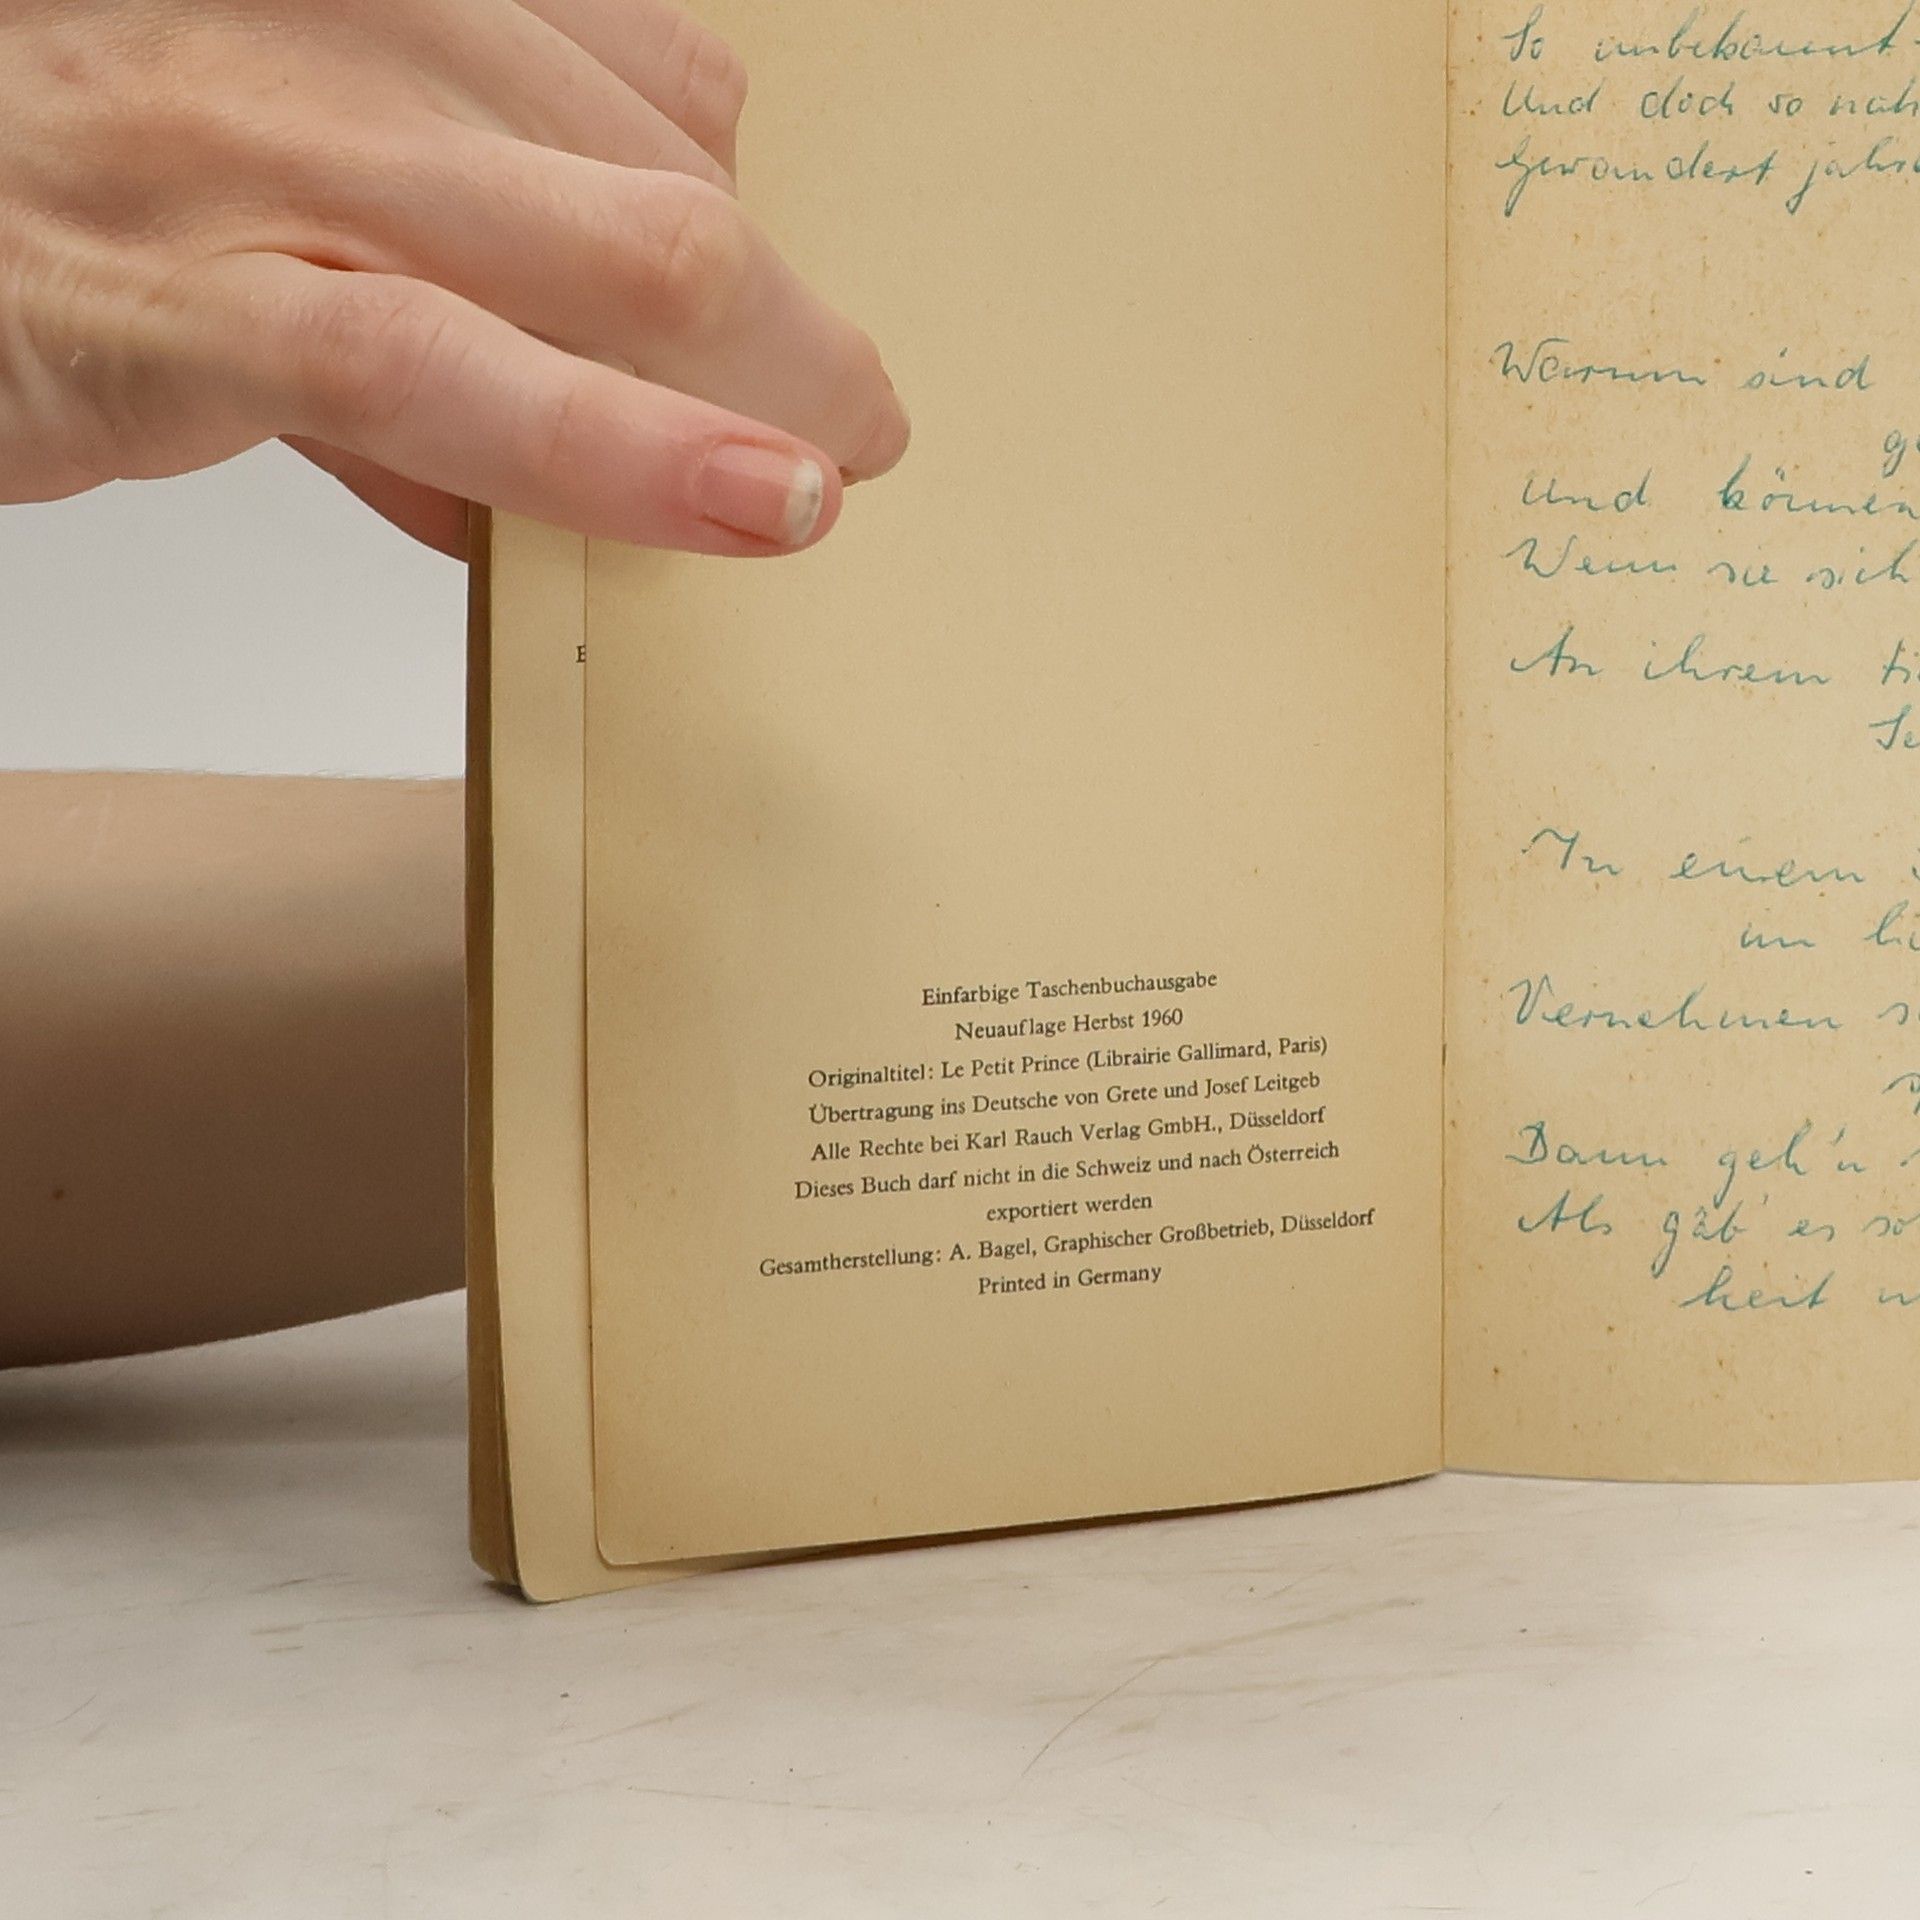 E
Einfarbige Taschenbuchausgabe
Neuauflage Herbst 1960
Originaltitel: Le Petit Prince (Librairie Gallimard, Paris)
Übertragung ins Deutsche von Grete und Josef Leitgeb
Alle Rechte bei Karl Rauch Verlag GmbH., Düsseldorf
Dieses Buch darf nicht in die Schweiz und nach Österreich
exportiert werden
Gesamtherstellung: A. Bagel, Graphischer Großbetrieb, Düsseldorf
Printed in Germany
So unbekannt
Und doch so nah
Gewandert
Warum sind
Und können
Wenn sie sich
An ihrem
In einem
im
Vernehmen
Dann geh'n
Als gäb' es
heit